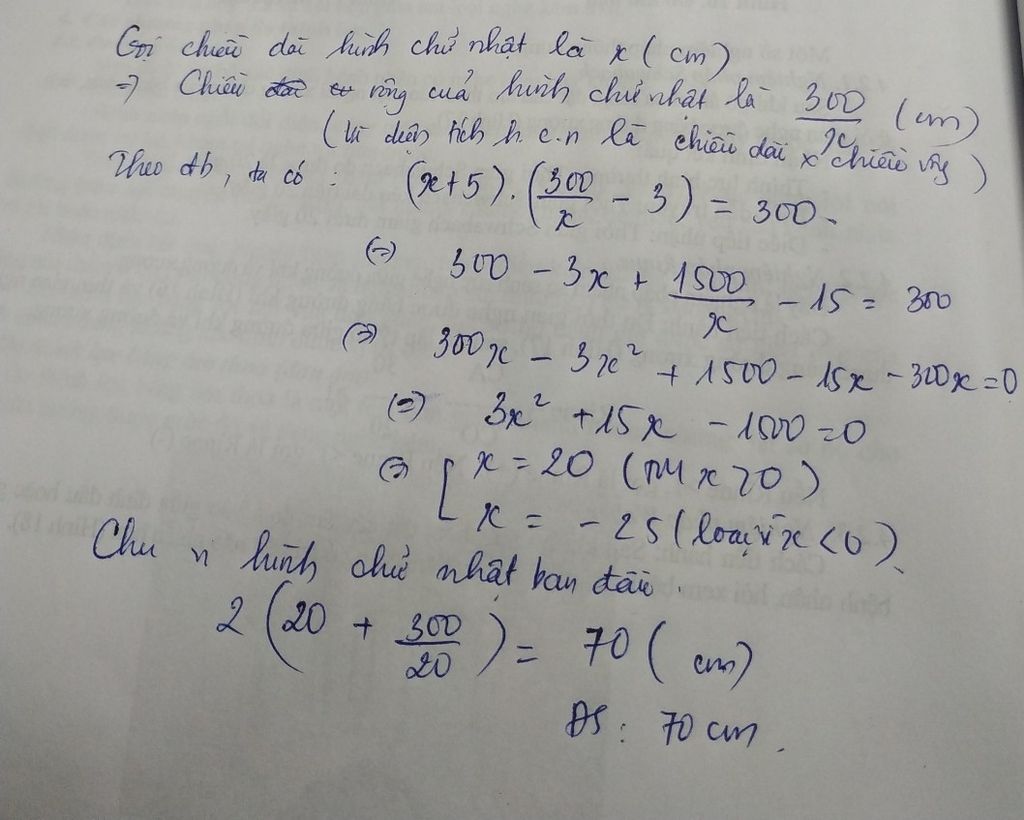 Gọi chiều dài hình chữ nhật là x (cm)
=> Chiều rộng của hình chữ nhật là 300/x (cm)
(Vì diện tích h.c.n là chiều dài x chiều rộng)
Theo đb, ta có : (x+5).(300/x - 3) = 300.
(=) 300 - 3x + 1500/x - 15 = 300
(=) 300x - 3x² + 1500 - 15x - 300x = 0
(=) 3x² + 15x - 1500 = 0
(=) [ x = 20 (TM x > 0)
x = - 25 (loại vì x < 0).
Chu vi hình chữ nhật ban đầu.
2 (20 + 300/20) = 70 (cm)
ĐS : 70 cm.